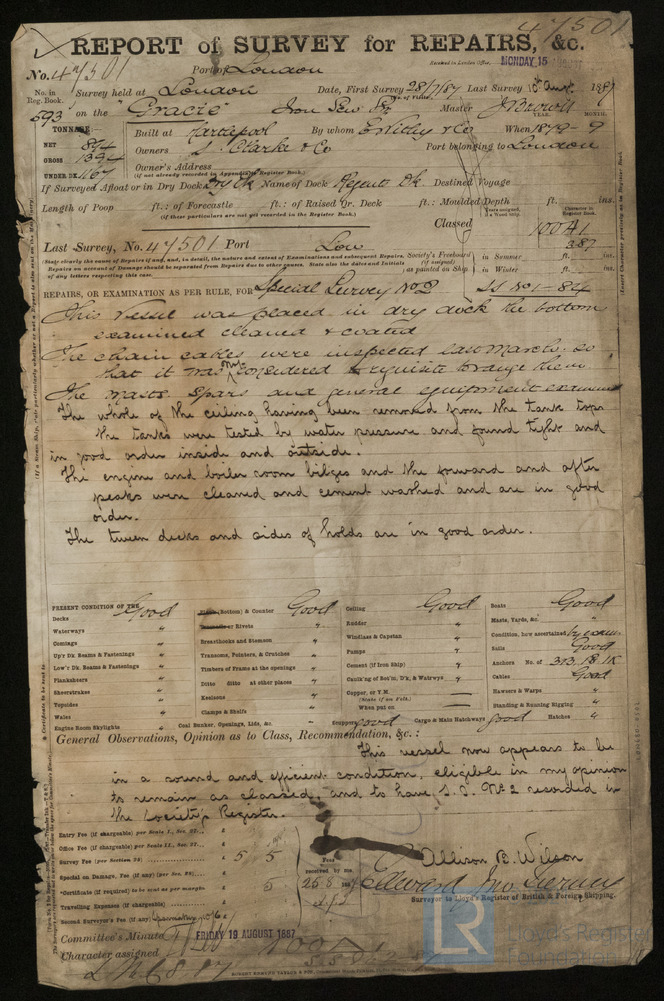 47501
REPORT of SURVEY for REPAIRS, &c.
Received in London Office, MONDAY 15 AUGUST
No. 47501 Port of London
No. in Reg. Book. Survey held at London Date, First Survey 28/7/87 Last Survey 10th Aug. 1887
593 on the "Gracie" Iron Scw Str Master J Brown
TONNAGE: YEAR. MONTH.
NET 894 Built at Hartlepool By whom E Withy & Co When 1879 - 9
GROSS 1394 Owners S. Clarke & Co Port belonging to London
UNDER DK 1167 Owner's Address
(if not already recorded in Appendix to Register Book.)
If Surveyed Afloat or in Dry Dock Dry Dk Name of Dock Regents Dk Destined Voyage
Length of Poop ft.: of Forecastle ft.: of Raised Qr. Deck ft.: Moulded Depth ft. ins.
(if these particulars are not yet recorded in the Register Book.)
Classed 100A1
Last Survey, No. 47501 Port Lon 3.87
(State clearly the cause of Repairs if any, and, in detail, the nature and extent of Examinations and subsequent Repairs.
Repairs on account of Damage should be separated from Repairs due to other causes. State also the dates and Initials
of any letters respecting this case.
Society's Freeboard (if assigned) as painted on Ship in Summer ft. ins.
in Winter ft. ins.
REPAIRS, OR EXAMINATION AS PER RULE, FOR Special Survey No 2 SS No 1 - 84
This vessel was placed in dry dock the bottom
examined cleaned & coated
The chain cables were inspected last March, so
that it was not considered requisite to range them.
The masts spars and general equipment examined
The whole of the ceiling having been removed from the tank tops
the tanks were tested by water pressure and found tight and
in good order inside and outside.
The engine and boiler room bilges and the forward and after
peaks were cleaned and cement washed and are in good
order.
The tween decks and sides of holds are in good order.
PRESENT CONDITION OF THE
Decks Good
Waterways "
Comings "
Up'r Dk. Beams & Fastenings "
Low'r Dk. Beams & Fastenings "
Planksheers "
Sheerstrakes "
Topsides "
Wales "
Engine Room Skylights "
(Bottom) & Counter Good
or Rivets "
Breasthooks and Stemson "
Transoms, Pointers, & Crutches "
Timbers of Frame at the openings "
Ditto ditto at other places "
Keelsons "
Clamps & Shelfs "
Coal Bunker, Openings, Lids, &c. "
Ceiling Good
Rudder "
Windlass & Capstan "
Pumps "
Cement (if Iron Ship) "
Caulk'ng of Bot'm, D'k, & Watrwys "
Copper, or Y.M. —
When put on —
Scuppers good Cargo & Main Hatchways good Hatches "
Boats Good
Masts, Yards, &c. "
Condition, how ascertained by exam
Sails Good
Anchors No. of 3B. 1S. 1K
Cables Good
Hawsers & Warps "
Standing & Running Rigging "
General Observations, Opinion as to Class, Recommendation, &c. :
This vessel now appears to be
in a sound and efficient condition, eligible in my opinion
to remain as classed, and to have S.S. No 2 recorded in
the Society's Register.
Entry Fee (if chargeable) per Scale I., Sec. 27... £
Office Fee (if chargeable) per Scale II., Sec. 27... £
Survey Fee (per Section 28) £ 5 5
Special on Damage, Fee (if any) (per Sec. 28) £
*Certificate (if required) to be sent as per margin £ 5
Travelling Expenses (if chargeable) £
Second Surveyor's Fee (if any)
Fees received by me,
25.8.1887
Allison B. Wilson
Edward Jno Tierney
Surveyor to Lloyd's Register of British & Foreign Shipping.
Committee's Minute FRIDAY 19 AUGUST 1887
Character assigned 100A1
LR
Lloyd's Register
Foundation